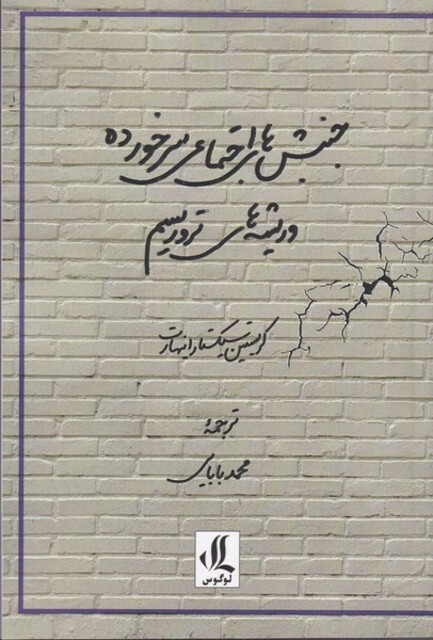 جنبش‌های اجتماعی سرخورده
و ریشه‌های تروریسم
کریستین سیکستا رانهارت
ترجمهٔ
محمد بابایی
لوگوس